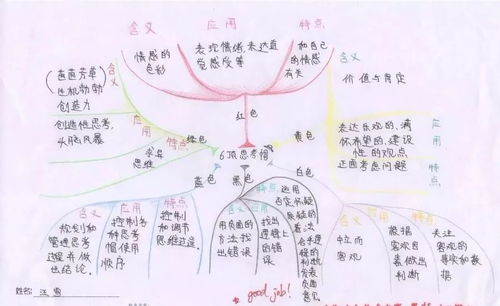 含义 应用 特点
情感的
色彩
表现情绪,表达直
觉感受等
和自己
的情感
有关
红色
含义
(茵茵芳草
生机勃勃
创造力
应用
创造性思考,
头脑风暴
特点
求异
思维
绿色
含义
价值与肯定
黄色
应用
表达乐观的、满
怀希望的、建设
性的观点
特点
正面考虑问题
6顶思考帽
蓝色
黑色
白色
含义
规划和
管理思考
过程并做
出结论.
应用
控制各
种思考
帽使用
顺序
特点
控制
和调节
思维过程
含义
用负面的
方法找
出错误
应用
找出
逻辑上
的错
误
特点,运用
否定怀疑
质疑的
看法
合乎逻
辑的批
判发表
负面意见
含义
中立而
客观
应用
根据
客观自
表,做出
判断
特点
关注
客观的
事实和数
据
姓名: 汪雪
good job!